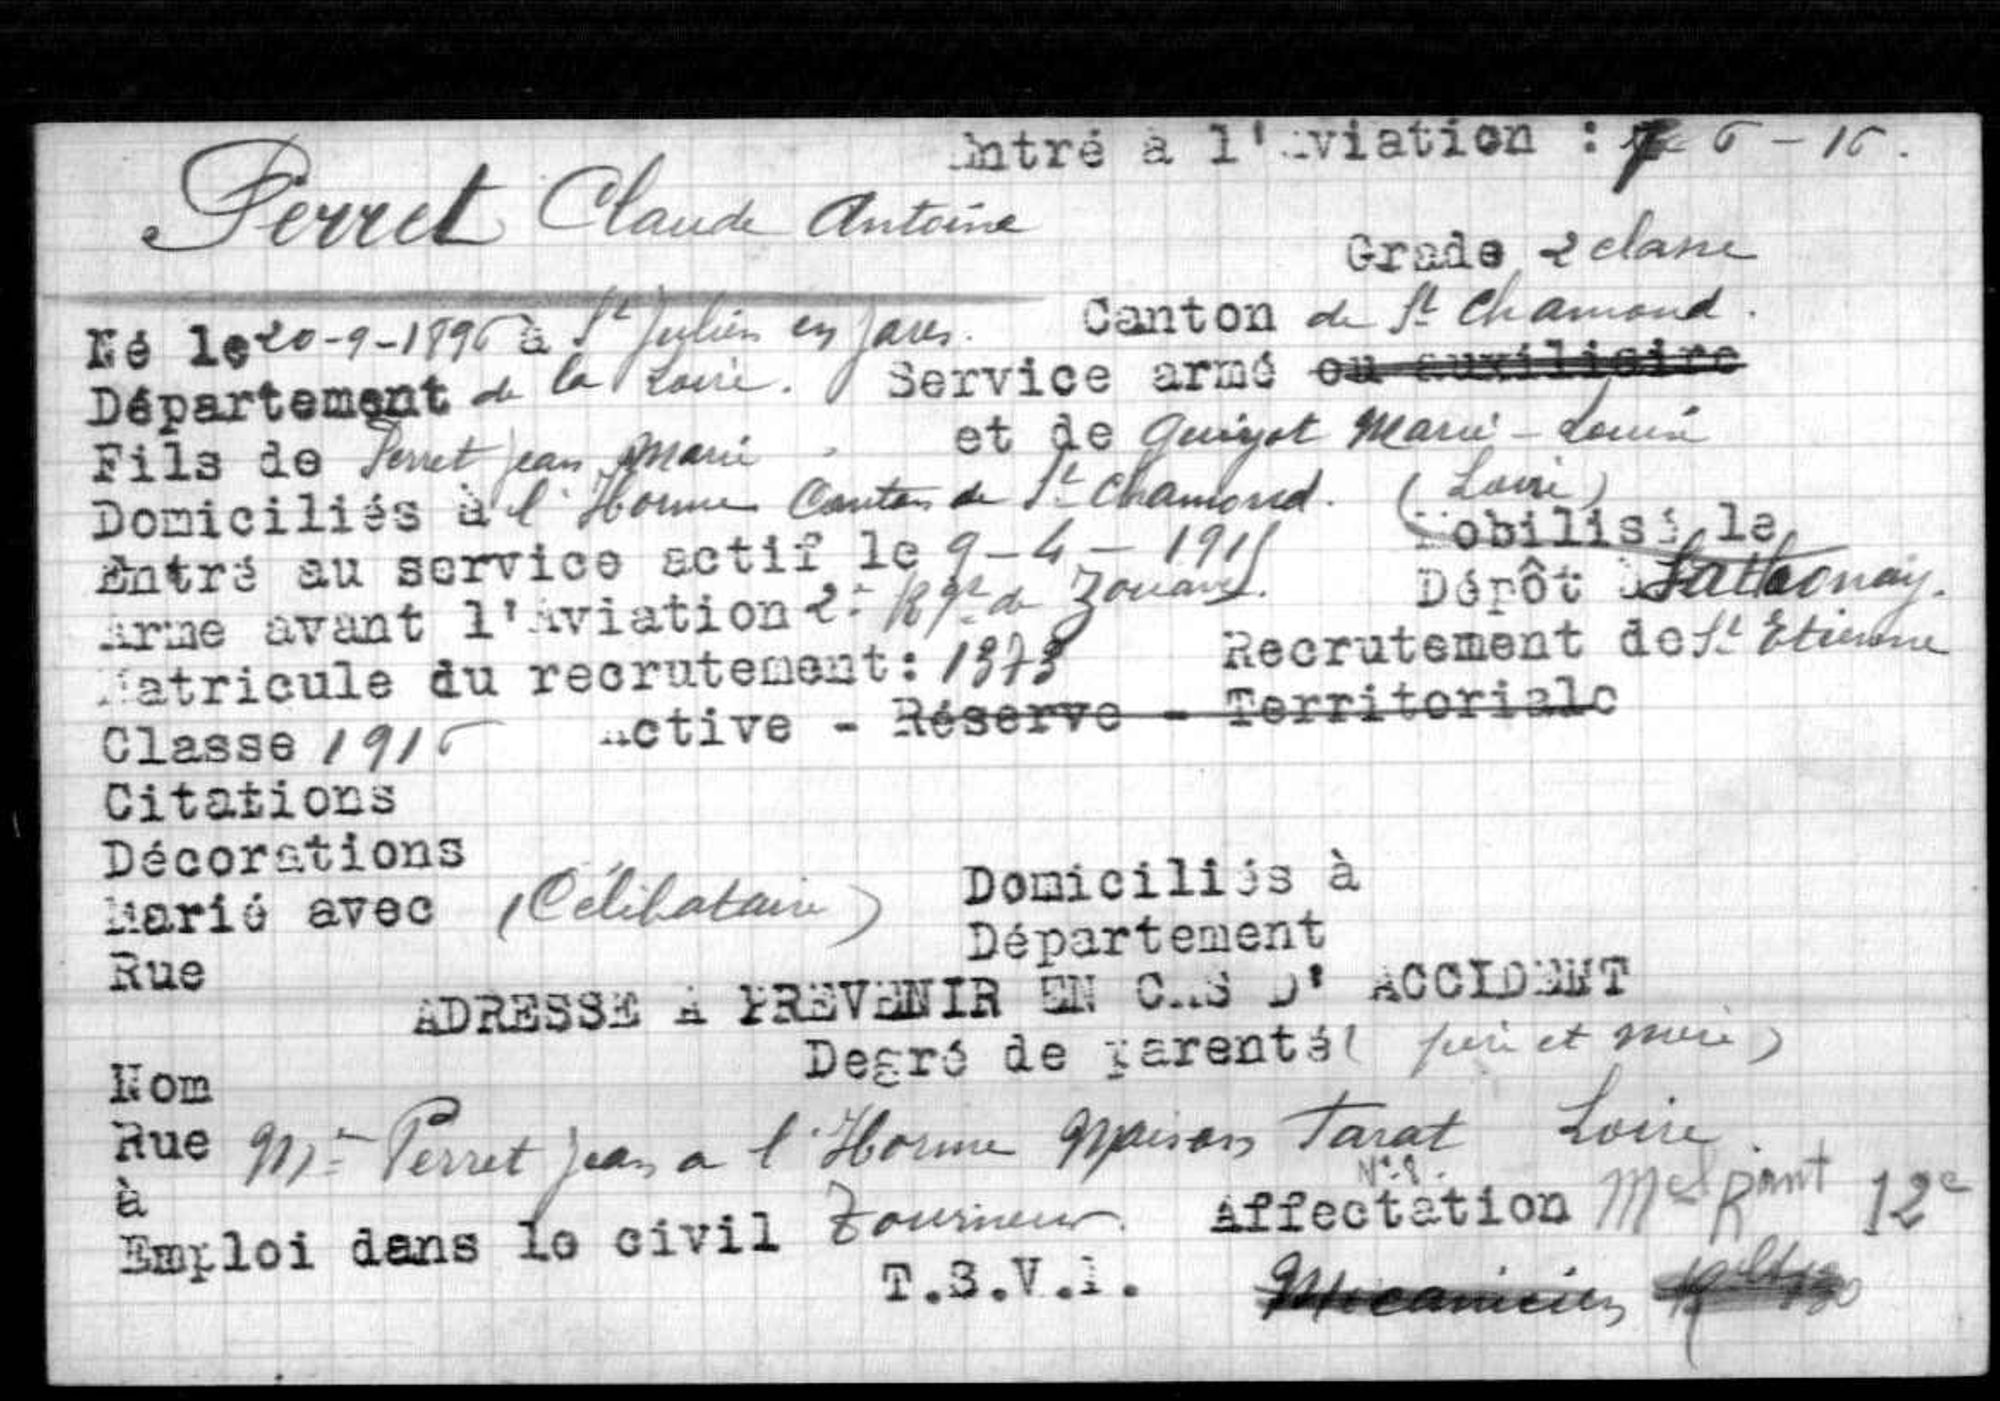 Entré à l'Aviation : 6-16.
Perret Claude Antoine
Grade 2 classe
Né le 20-9-1896 à St Julien en Jarez. Canton de St Chamond.
Département de la Loire. Service armé ou auxiliaire
Fils de Perret Jean Marie et de Guigot Marie-Louise
Domiciliés à l'Horme Canton de St Chamond. (Loire)
Entré au service actif le 9-4-1915 Mobilisé le
Arme avant l'Aviation 2e Rgt de Zouaves. Dépôt à Sathonay.
Matricule du recrutement: 1373 Recrutement de St Etienne
Classe 1916 Active - Réserve - Territoriale
Citations
Décorations
Marié avec (Célibataire) Domiciliés à
Rue Département
ADRESSE A PREVENIR EN CAS D'ACCIDENT
Nom Degré de parenté (père et mère)
Rue Mr Perret Jean a l'Horme Maison Tarat Loire.
N°8.
à
Emploi dans le civil Tourneur. Affectation 12e
T.S.V.P. Mecanicien